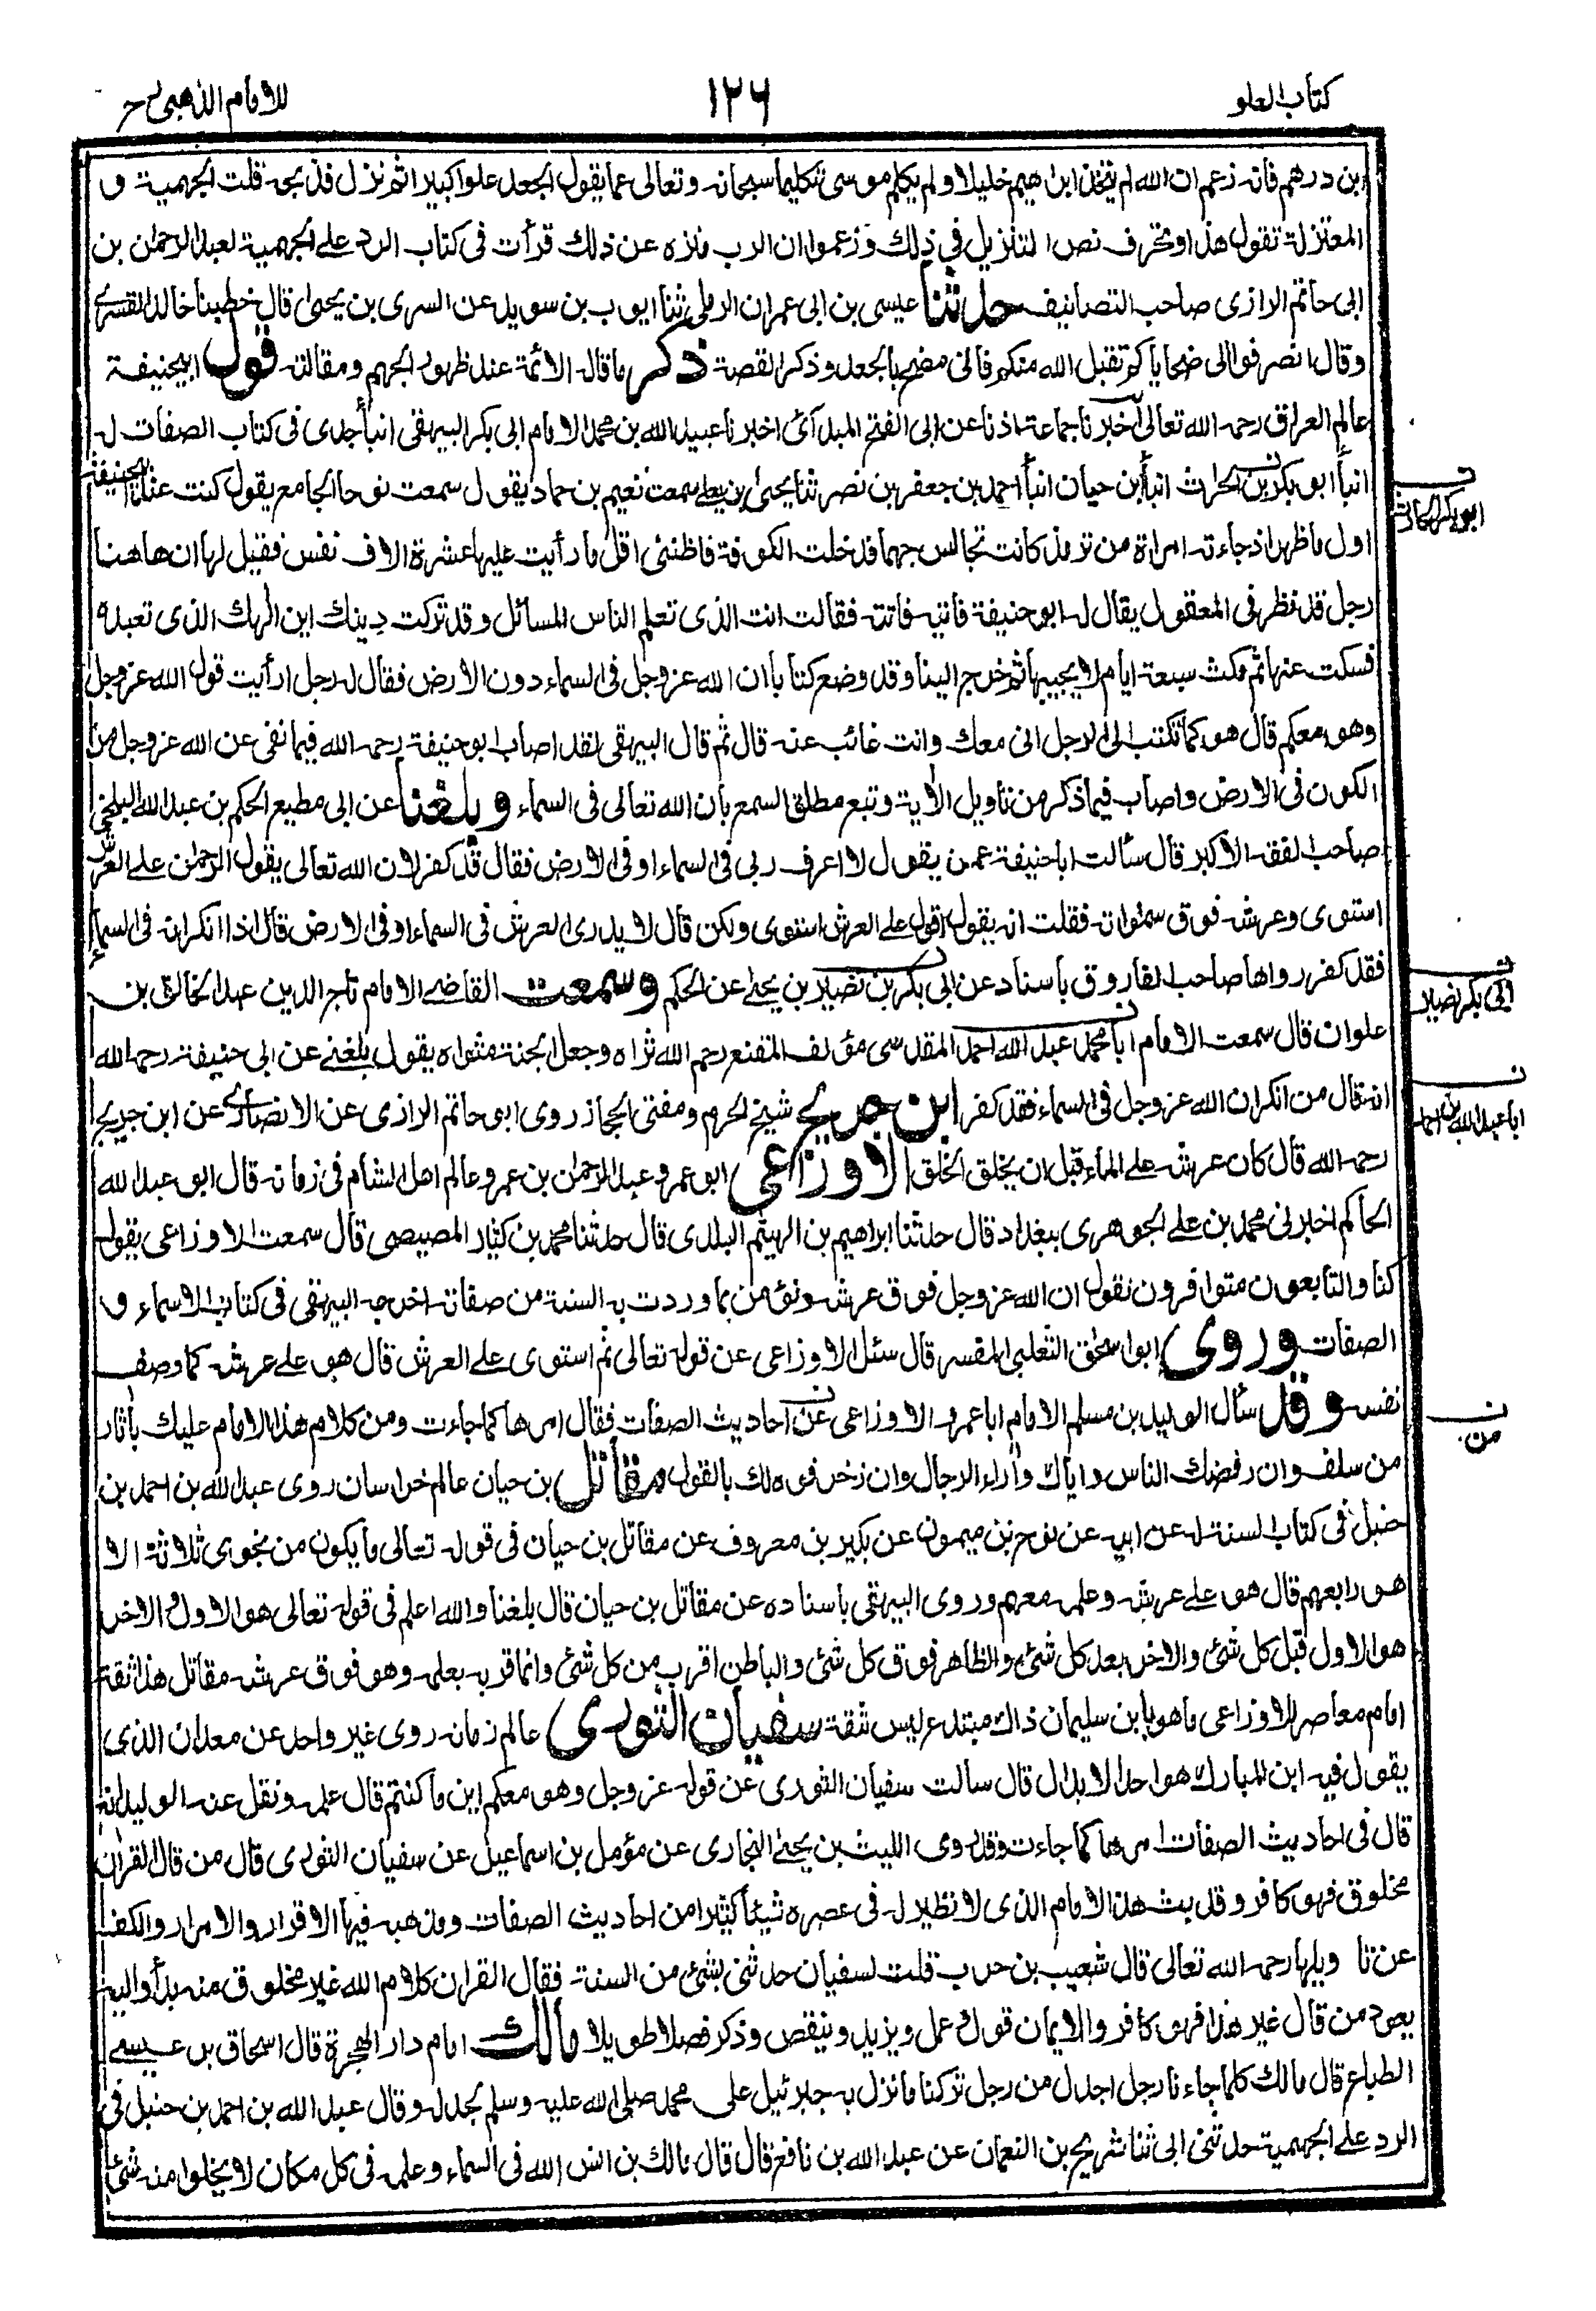 كتاب العلو
١٢٦
للامام الذهبي رح
ابن درهم فانه زعم ان الله لم يتخذ ابراهيم خليلا ولم يكلم موسى تكليما سبحانه وتعالى عما يقول الجعد علوا كبيرا ثم نزل فذبحه قلت الجهمية و
المعتزلة تقول هذا وتحرف نص التنزيل في ذلك وزعموا ان الرب منزه عن ذلك قرأت فى كتاب الرد على الجهمية لعبد الرحمن بن
ابى حاتم الرازى صاحب التصانيف حدثنا عيسى بن ابى عمران الرملى ثنا ايوب بن سويد عن السرى بن يحيى قال خطبنا خالد القسرى
وقال انصرفوا الى ضحاياكم تقبل الله منكم فانى مضح بالجعد وذكر القصة ذكر ما قاله الائمة عند ظهور الجهم ومقالته قول ابيحنيفة
عالم العراق رحمه الله تعالى اخبرنا جماعة اذنا عن ابى الفتح المندآئى اخبرنا عبيد الله بن محمد الامام ابى بكر البيهقى انبأ جدى فى كتاب الصفات له
انبأ ابو بكر بن الحارث انبأ ابن حيان انبأ احمد بن جعفر بن نصر ثنا يحيى بن يعلى سمعت نعيم بن حماد يقول سمعت نوحا الجامع يقول كنت عند ابيحنيفة
اول ما ظهر اذ جاءته امراة من ترمذ كانت تجالس جهما فدخلت الكوفة فاظننى اقل ما رأيت عليها عشرة الاف نفس فقيل لها ان هاهنا
رجل قد نظر فى المعقول يقال له ابو حنيفة فاتيه فاتته فقالت انت الذى تعلم الناس المسائل وقد تركت دينك اين الهك الذى تعبده
فسكت عنها ثم مكث سبعة ايام لا يجيبها ثم خرج الينا وقد وضع كتابا ان الله عز وجل فى السماء دون الارض فقال له رجل ارأيت قول الله عز وجل
وهو معكم قال هو كما تكتب الى الرجل انى معك وانت غائب عنه قال ثم قال البيهقى لقد اصاب ابو حنيفة رحمه الله فيما نفى عن الله عز وجل من
الكون فى الارض واصاب فيما ذكر من تاويل الاية وتبع مطلق السمع بان الله تعالى فى السماء وبلغنا عن ابى مطيع الحكم بن عبد الله البلخى
صاحب الفقه الاكبر قال سألت ابا حنيفة عمن يقول لا اعرف ربى فى السماء او فى الارض فقال قد كفر لان الله تعالى يقول الرحمن على العرش
استوى وعرشه فوق سمواته فقلت انه يقول اقول على العرش استوى ولكن قال لا يدرى العرش فى السماء او فى الارض قال اذا انكر انه فى السماء
فقد كفر رواها صاحب الفاروق باسناد عن ابى بكر بن نصير بن يحيى عن الحكم وسمعت القاضى الامام تاج الدين عبد الخالق بن
علوان قال سمعت الامام ابا محمد عبد الله احمد المقدسى مؤلف المقنع رحم الله ثراه وجعل الجنة مثواه يقول بلغنى عن ابى حنيفة رحمه الله
انه قال من انكر ان الله عز وجل فى السماء فقد كفر ابن جريج شيخ الحرم ومفتى الحجاز روى ابى حاتم الرازى عن الانصارى عن ابن جريج
رحمه الله قال كان عرشه على الماء قبل ان يخلق الخلق الاوزاعى ابو عمرو عبد الرحمن بن عمرو عالم اهل الشام فى زمانه قال ابو عبد الله
الحاكم اخبرنى محمد بن على الجوهرى ببغداد قال حدثنا ابراهيم بن الهيثم البلدى قال حدثنا محمد بن كثير المصيصى قال سمعت الاوزاعى يقول
كنا والتابعون متوافرون نقول ان الله عز وجل فوق عرشه ونؤمن بما وردت به السنة من صفاته اخرجه البيهقى فى كتاب الاسماء و
الصفات وروى ابو اسحق الثعلبى المفسر قال سئل الاوزاعى عن قوله تعالى ثم استوى على العرش قال هو على عرشه كما وصف
نفسه وقد سأل الوليد بن مسلم الامام ابا عمرو الاوزاعى عن احاديث الصفات فقال امرها كما جاءت ومن كلام هذا الامام عليك بأثار
من سلف وان رفضك الناس واياك وأراء الرجال وان زخرفوه لك بالقول مقاتل بن حيان عالم خراسان روى عبد الله بن احمد بن
حنبل فى كتاب السنة له عن ابيه عن نوح بن ميمون عن بكير بن معروف عن مقاتل بن حيان فى قوله تعالى ما يكون من نجوى ثلاثة الا
هو رابعهم قال هو على عرشه وعلمه معهم وروى البيهقى باسناده عن مقاتل بن حيان قال بلغنا والله اعلم فى قوله تعالى هو الاول والاخر
هو الاول قبل كل شئ والاخر بعد كل شئ والظاهر فوق كل شئ والباطن اقرب من كل شئ وانما قربه بعلمه وهو فوق عرشه مقاتل هذا ثقة
امام معاصر للاوزاعى ما هو بابن سليمان ذاك مبتدع ليس ثقة سفيان الثورى عالم زمانه روى غير واحد عن معدان الذى
يقول فيه ابن المبارك هو احد الابدال قال سالت سفيان الثورى عن قوله عز وجل وهو معكم اين ما كنتم قال علمه ونقل عنه الوليد انه
قال فى احاديث الصفات امرها كما جاءت وقد روى الليث بن يحيى البخارى عن مؤمل بن اسماعيل عن سفيان الثورى قال من قال القران
مخلوق فهو كافر وقد بث هذا الامام الذى لا نظير له فى عصره شيئا كثيرا من احاديث الصفات ومذهبه فيها الاقرار والامرار والكف
عن تا ويلها رحمه الله تعالى قال شعيب بن حرب قلت لسفيان حدثنى بشئ من السنة فقال القران كلام الله غير مخلوق منه بدأ واليه
يعود من قال غير هذا فهو كافر والايمان قول وعمل ويزيد وينقص وذكر فصلا طويلا مالك امام دار الهجرة قال اسحاق بن عيسى
الطباع قال مالك كلما جاءنا رجل اجدل من رجل تركنا ما نزل به جبرئيل على محمد صلى الله عليه وسلم لجدله وقال عبد الله بن احمد بن حنبل فى
الرد على الجهمية حدثنى ابى ثنا شريح بن النعمان عن عبد الله بن نافع قال قال مالك بن انس الله فى السماء وعلمه فى كل مكان لا يخلوا منه شئ
ن
ابو بكر الحارث
ن
ابى بكر نصير
ن
ابا عبد الله بن احمد
ن
من